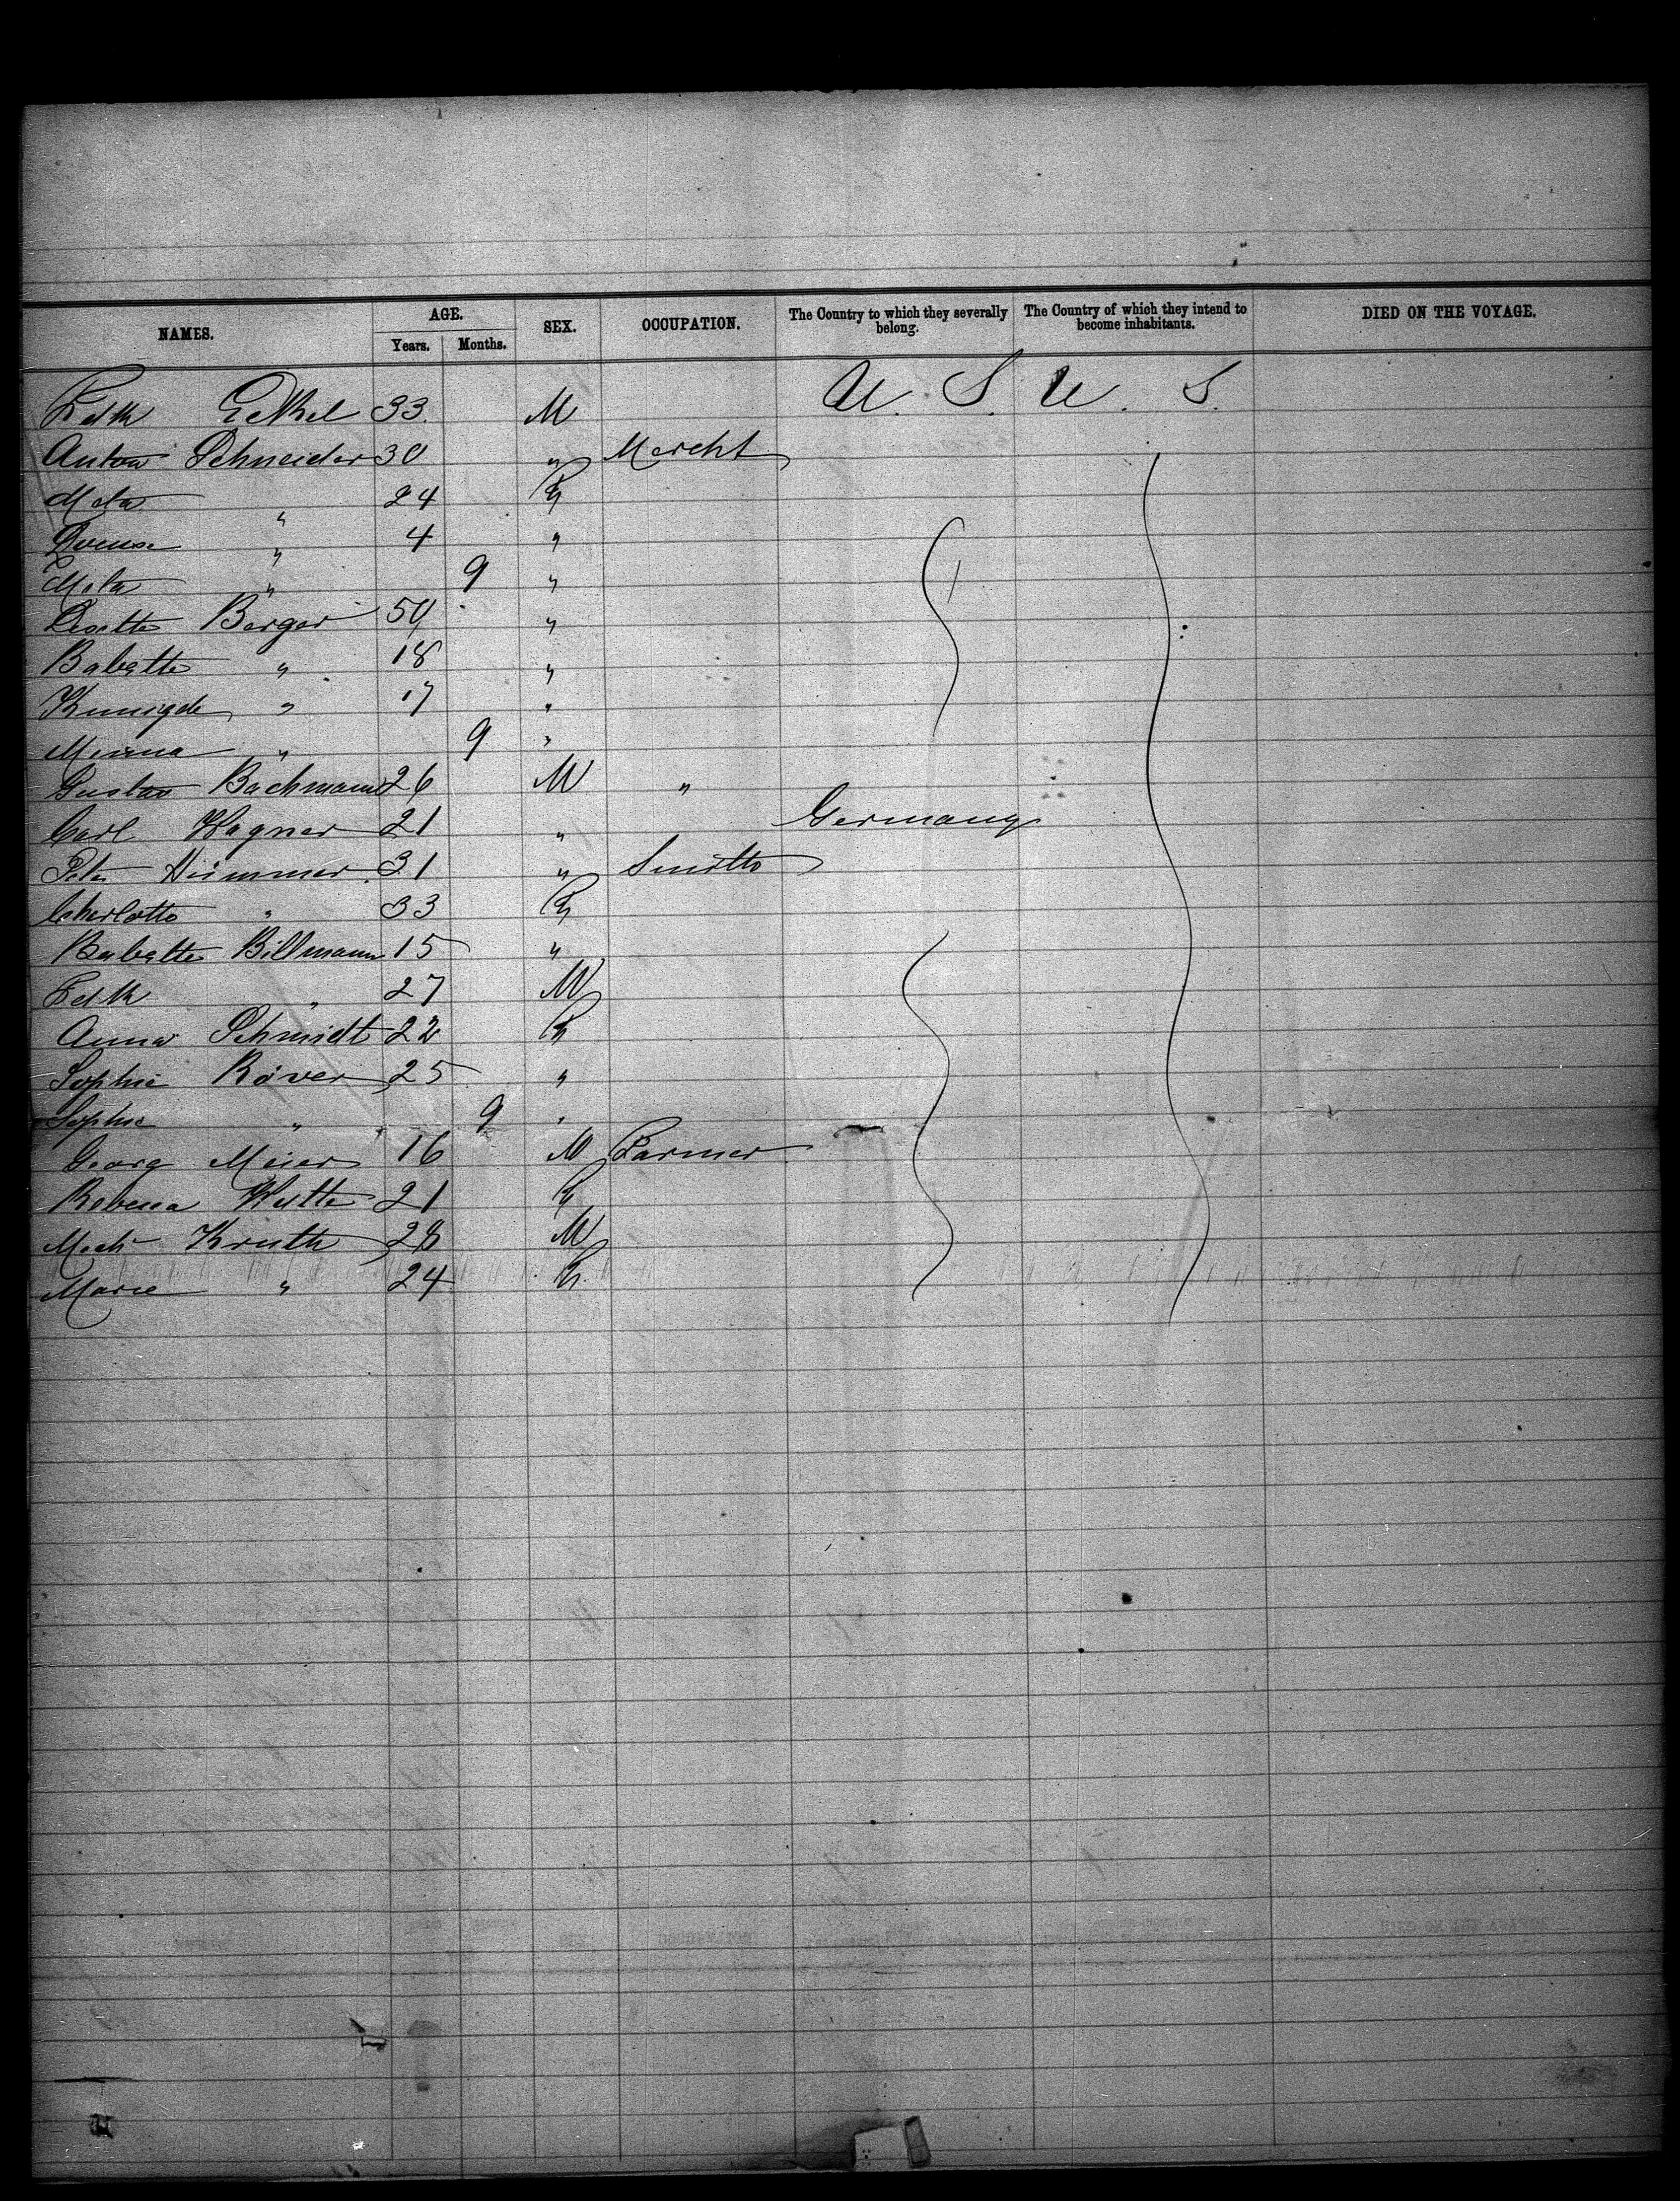 NAMES. AGE. Years. Months. SEX. OCCUPATION. The Country to which they severally belong. The Country of which they intend to become inhabitants. DIED ON THE VOYAGE.
Fedk 33. M U. S. U. S.
Anton Schneider 30 " Mercht
Meta " 24 F
Louise " 4 "
Meta " 9 "
Lisette Berger 50 "
Babette " 18 "
Kunigde " 17 "
Minna " 9 "
Gustav Bachmann 26 M "
Carl Wagner 21 " Germany
Peter Hümmer 31 " Smith
Charlotte " 33 F
Babette Billmann 15 "
Fedk " 27 M
Anna Schmidt 22 F
Sophie Röver 25 "
Sophie " 9 "
Georg Meier 16 M Farmer
21 F
Kruth 28 M
Marie " 24 F